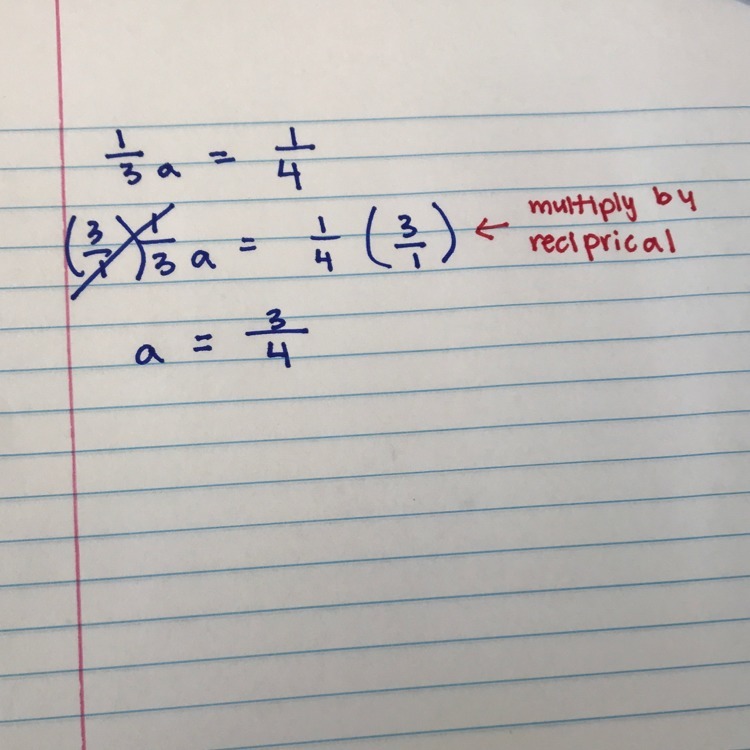 1/3 a = 1/4
(3/1) 1/3 a = 1/4 (3/1) ← multiply by
reciprical
a = 3/4